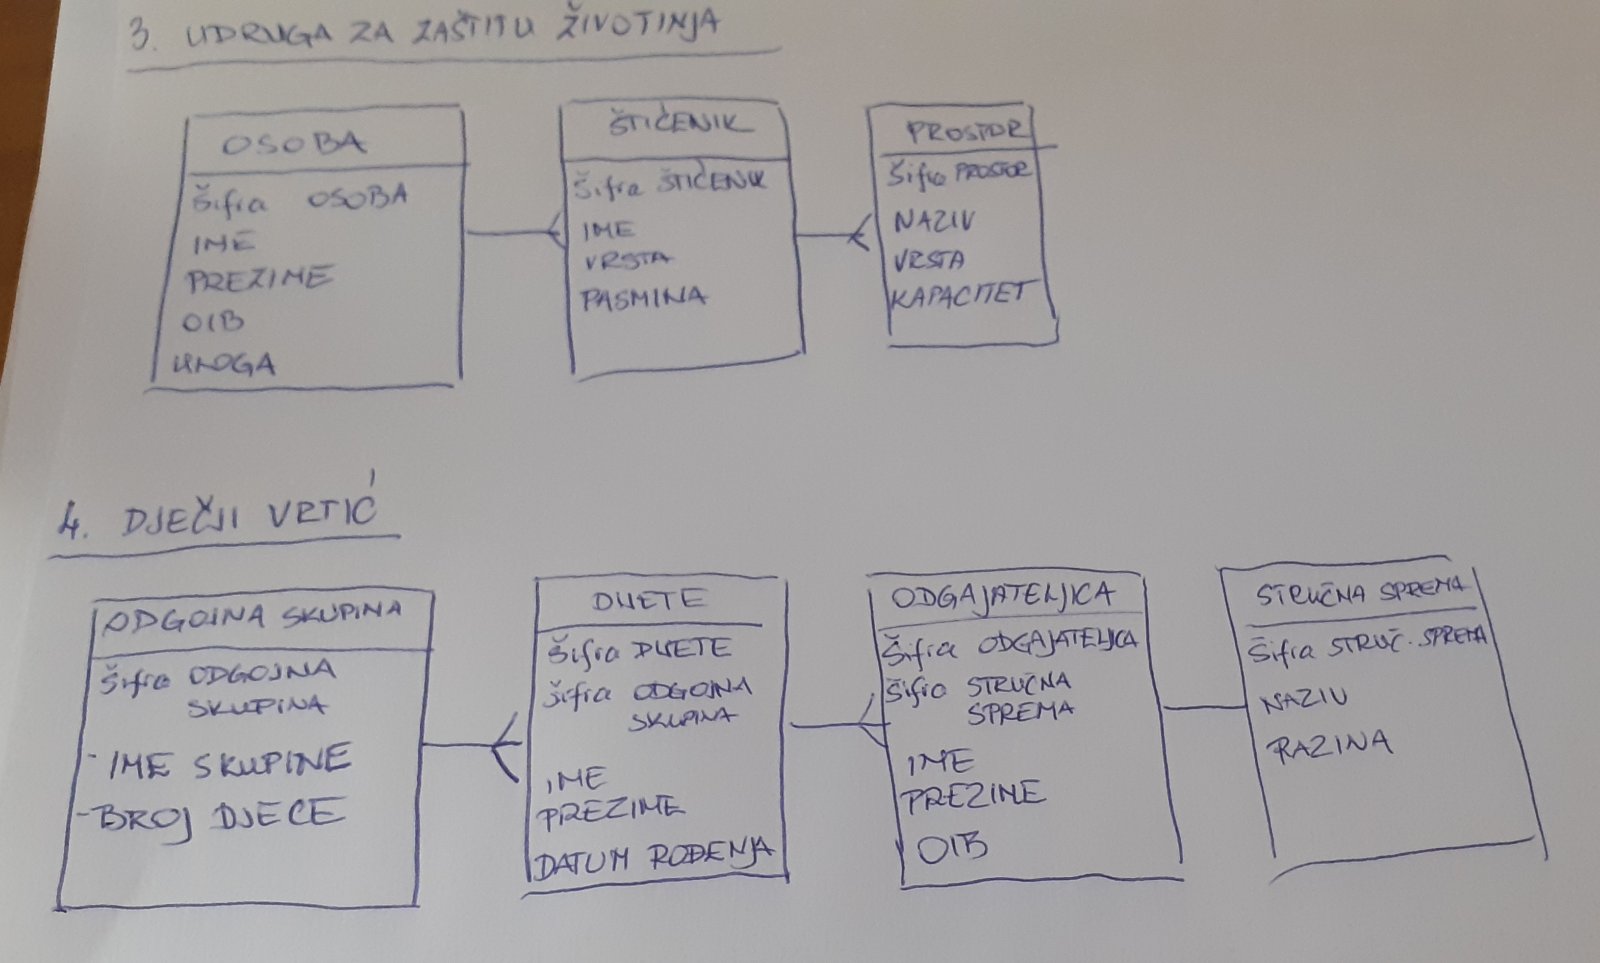 3. UDRUGA ZA ZAŠTITU ŽIVOTINJA
OSOBA
Šifra OSOBA
IME
PREZIME
OIB
ULOGA
ŠTIĆENIK
Šifra ŠTIĆENIK
IME
VRSTA
PASMINA
PROSTOR
Šifra PROSTOR
NAZIV
VRSTA
KAPACITET
4. DJEČJI VRTIĆ
ODGOJNA SKUPINA
Šifra ODGOJNA
SKUPINA
- IME SKUPINE
- BROJ DJECE
DIJETE
Šifra DIJETE
Šifra ODGOJNA
SKUPINA
IME
PREZIME
DATUM ROĐENJA
ODGAJATELJICA
Šifra ODGAJATELJICA
Šifra STRUČNA
SPREMA
IME
PREZIME
OIB
STRUČNA SPREMA
Šifra STRUČ. SPREMA
NAZIV
RAZINA